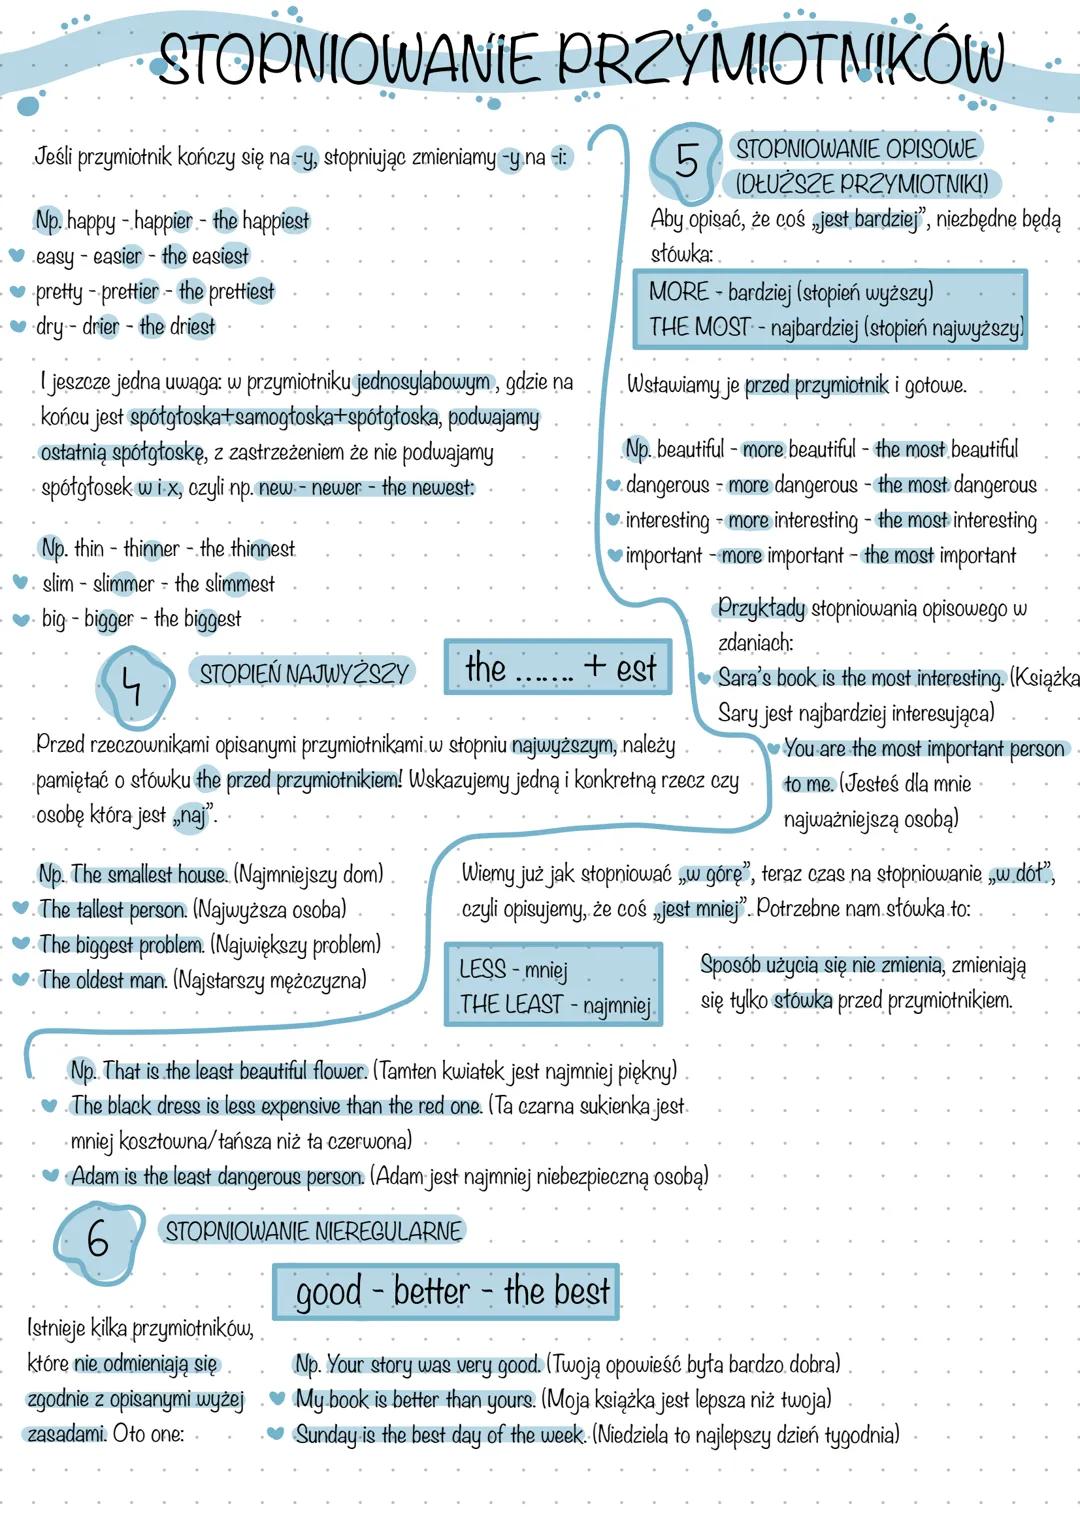 STOPNIOWANIE PRZYMIOTNIKÓW
Jeśli przymiotnik kończy się na -y, stopniując zmieniamy -y na -i:
Np. happy - happier - the happiest
easy - easier - the easiest
pretty - prettier - the prettiest
dry - drier - the driest
I jeszcze jedna uwaga: w przymiotniku jednosylabowym, gdzie na
końcu jest spółgłoska+samogłoska+spółgłoska, podwajamy
ostatnią spółgłoskę, z zastrzeżeniem że nie podwajamy
spółgłosek w i x, czyli np. new - newer - the newest:
Np. thin - thinner - the thinnest
slim - slimmer - the slimmest
big - bigger - the biggest
4
STOPIEŃ NAJWYŻSZY
the ....... + est
Przed rzeczownikami opisanymi przymiotnikami w stopniu najwyższym, należy
pamiętać o słówku the przed przymiotnikiem! Wskazujemy jedną i konkretną rzecz czy
osobę która jest „naj”.
Np. The smallest house. (Najmniejszy dom)
The tallest person. (Najwyższa osoba)
The biggest problem. (Największy problem)
The oldest man. (Najstarszy mężczyzna)
5
STOPNIOWANIE OPISOWE
(DŁUŻSZE PRZYMIOTNIKI)
Aby opisać, że coś „jest bardziej”, niezbędne będą
słówka:
MORE - bardziej (stopień wyższy)
THE MOST - najbardziej (stopień najwyższy)
Wstawiamy je przed przymiotnik i gotowe.
Np. beautiful - more beautiful - the most beautiful
dangerous - more dangerous - the most dangerous
interesting - more interesting - the most interesting
important - more important - the most important
Przykłady stopniowania opisowego w
zdaniach:
Sara's book is the most interesting. (Książka
Sary jest najbardziej interesująca)
You are the most important person
to me. (Jesteś dla mnie
najważniejszą osobą)
Wiemy już jak stopniować „w górę”, teraz czas na stopniowanie „w dół”,
czyli opisujemy, że coś „jest mniej”. Potrzebne nam słówka to:
LESS - mniej
THE LEAST - najmniej
Sposób użycia się nie zmienia, zmieniają
się tylko słówka przed przymiotnikiem.
Np. That is the least beautiful flower. (Tamten kwiatek jest najmniej piękny)
The black dress is less expensive than the red one. (Ta czarna sukienka jest
mniej kosztowna/tańsza niż ta czerwona)
Adam is the least dangerous person. (Adam jest najmniej niebezpieczną osobą)
6
STOPNIOWANIE NIEREGULARNE
good - better - the best
Istnieje kilka przymiotników,
które nie odmieniają się
zgodnie z opisanymi wyżej
zasadami. Oto one:
Np. Your story was very good. (Twoją opowieść była bardzo dobra)
My book is better than yours. (Moja książka jest lepsza niż twoja)
Sunday is the best day of the week. (Niedziela to najlepszy dzień tygodnia)